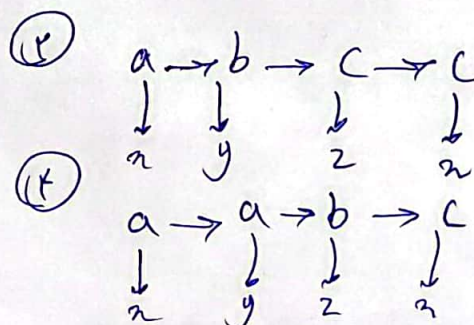 a → b → c → c
↓ ↓ ↓ ↓
x y z x
a → a → b → c
↓ ↓ ↓ ↓
x y z x